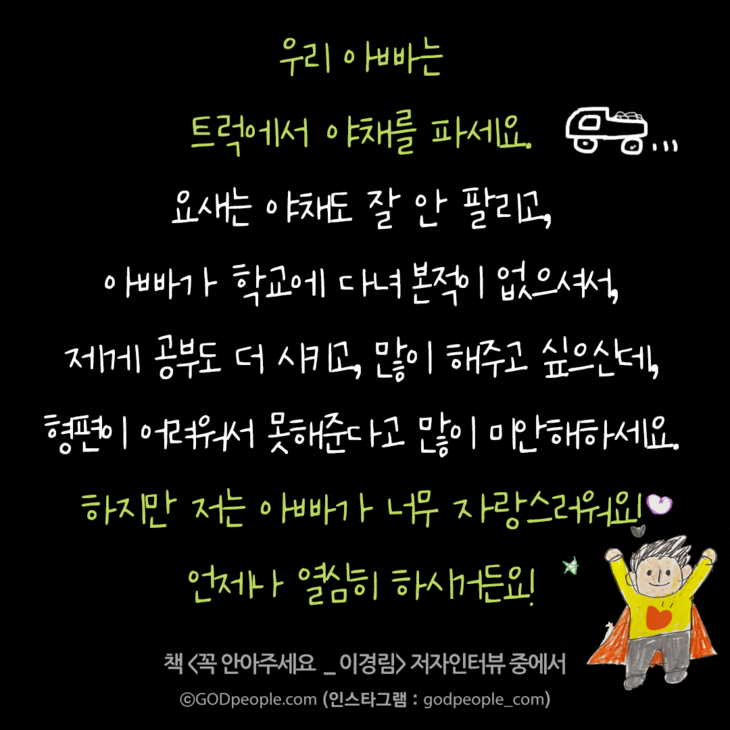 우리 아빠는
트럭에서 야채를 파세요.
요새는 야채도 잘 안 팔리고,
아빠가 학교에 다녀본적이 없으셔서,
제게 공부도 더 시키고, 많이 해주고 싶으신데,
형편이 어려워서 못해준다고 많이 미안해하세요.
하지만 저는 아빠가 너무 자랑스러워요!
언제나 열심히 하시거든요!
책 <꼭 안아주세요 _ 이경림> 저자인터뷰 중에서
©GODpeople.com (인스타그램 : godpeople_com)